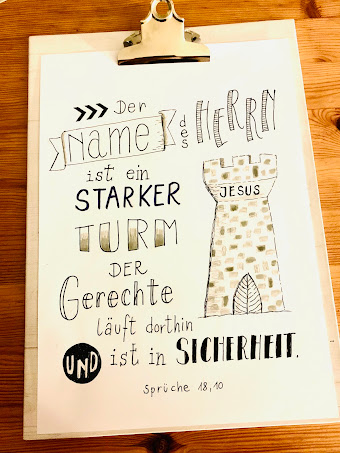 Der
Name des HERRN
ist ein
STARKER
TURM
DER
Gerechte
läuft dorthin
UND ist in SICHERHEIT.
Sprüche 18,10
JESUS